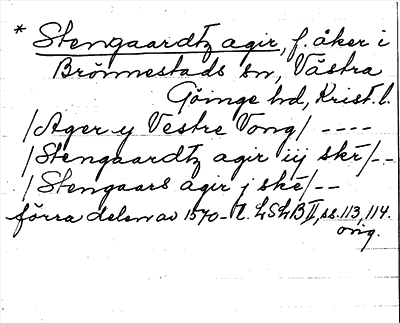 * Stengaardtz agir, f. åker i
Brönnestads sn, Västra
Göinge hd, Krist. l.
/Ager y Vestre Vong/ ----
/Stengaardtz agir iij skē/--
/Stengaars agir j skē/--
förra delen av 1570-t. LSLB II, ss. 113, 114.
orig.